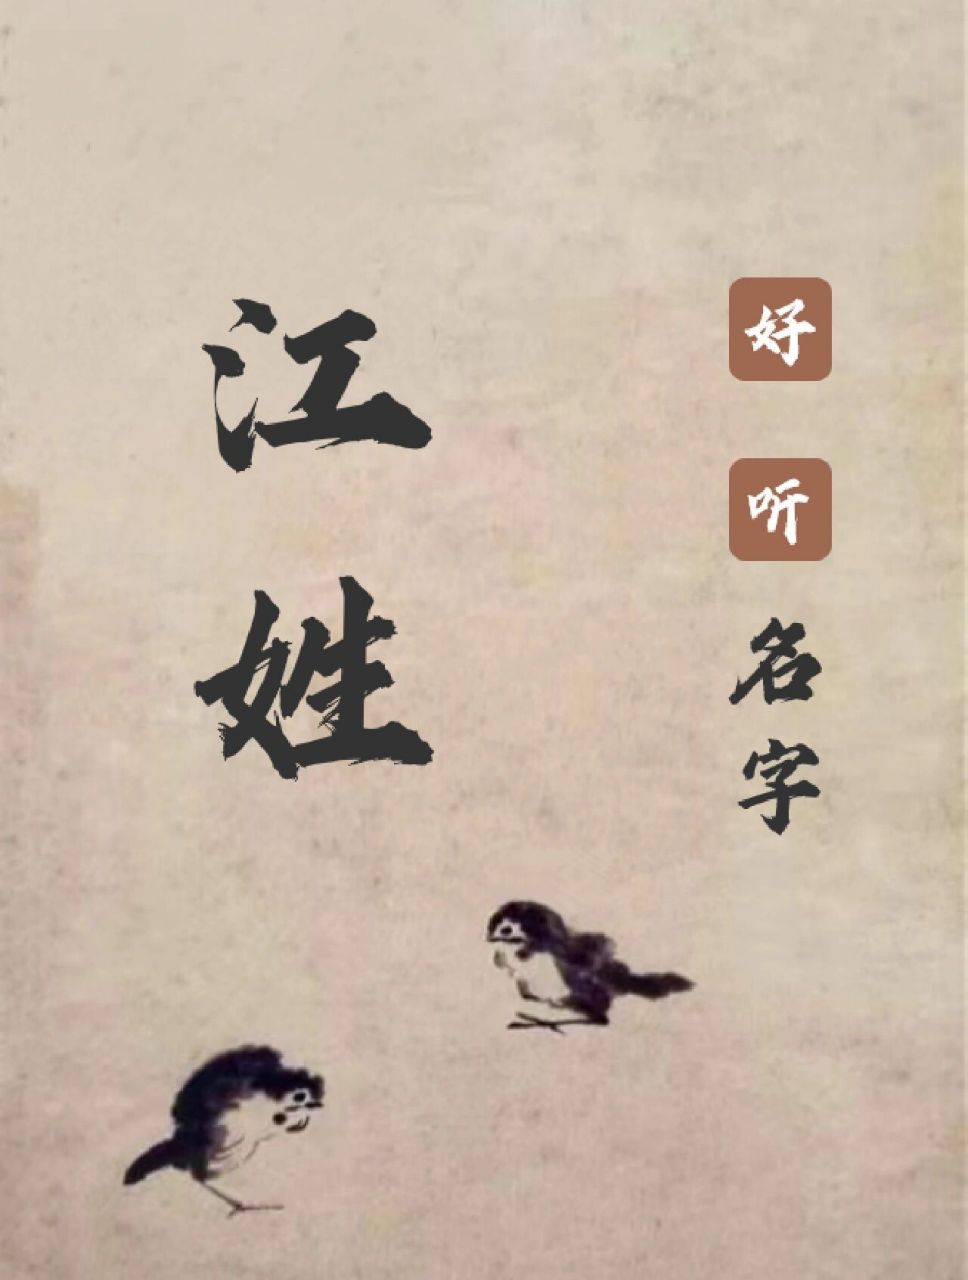 江姓
好听名字